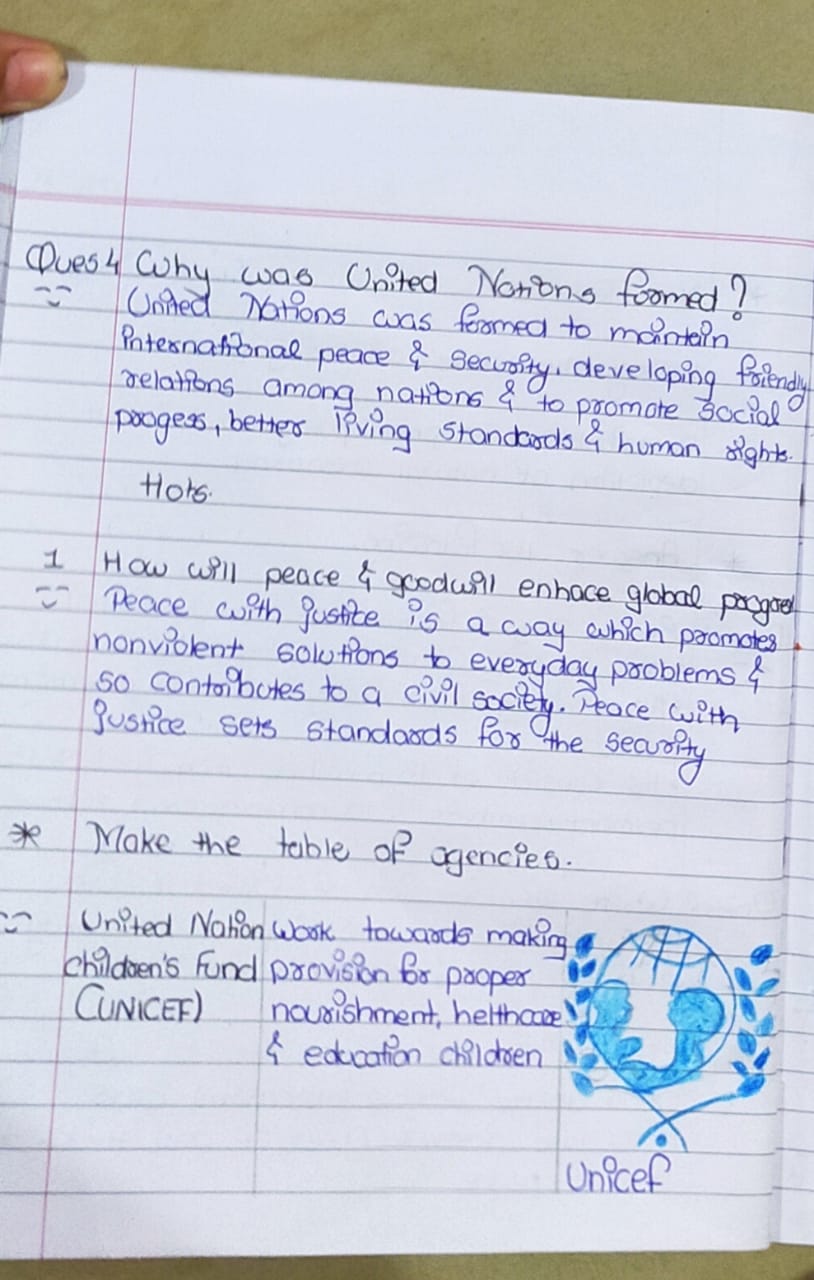 Ques 4 Why was United Nations formed?
United Nations was formed to maintain
international peace & security, developing friendly
relations among nations & to promote social
progess, better living standards & human rights.
Hots.
1 How will peace & goodwill enhace global progres
Peace with justice is a way which promotes
nonviolent solutions to everyday problems &
so contributes to a civil society. Peace with
justice sets standards for the security
* Make the table of agencies.
United Nation work towards making
children's Fund provision for proper
(UNICEF) nourishment, helthcare
& education children
Unicef